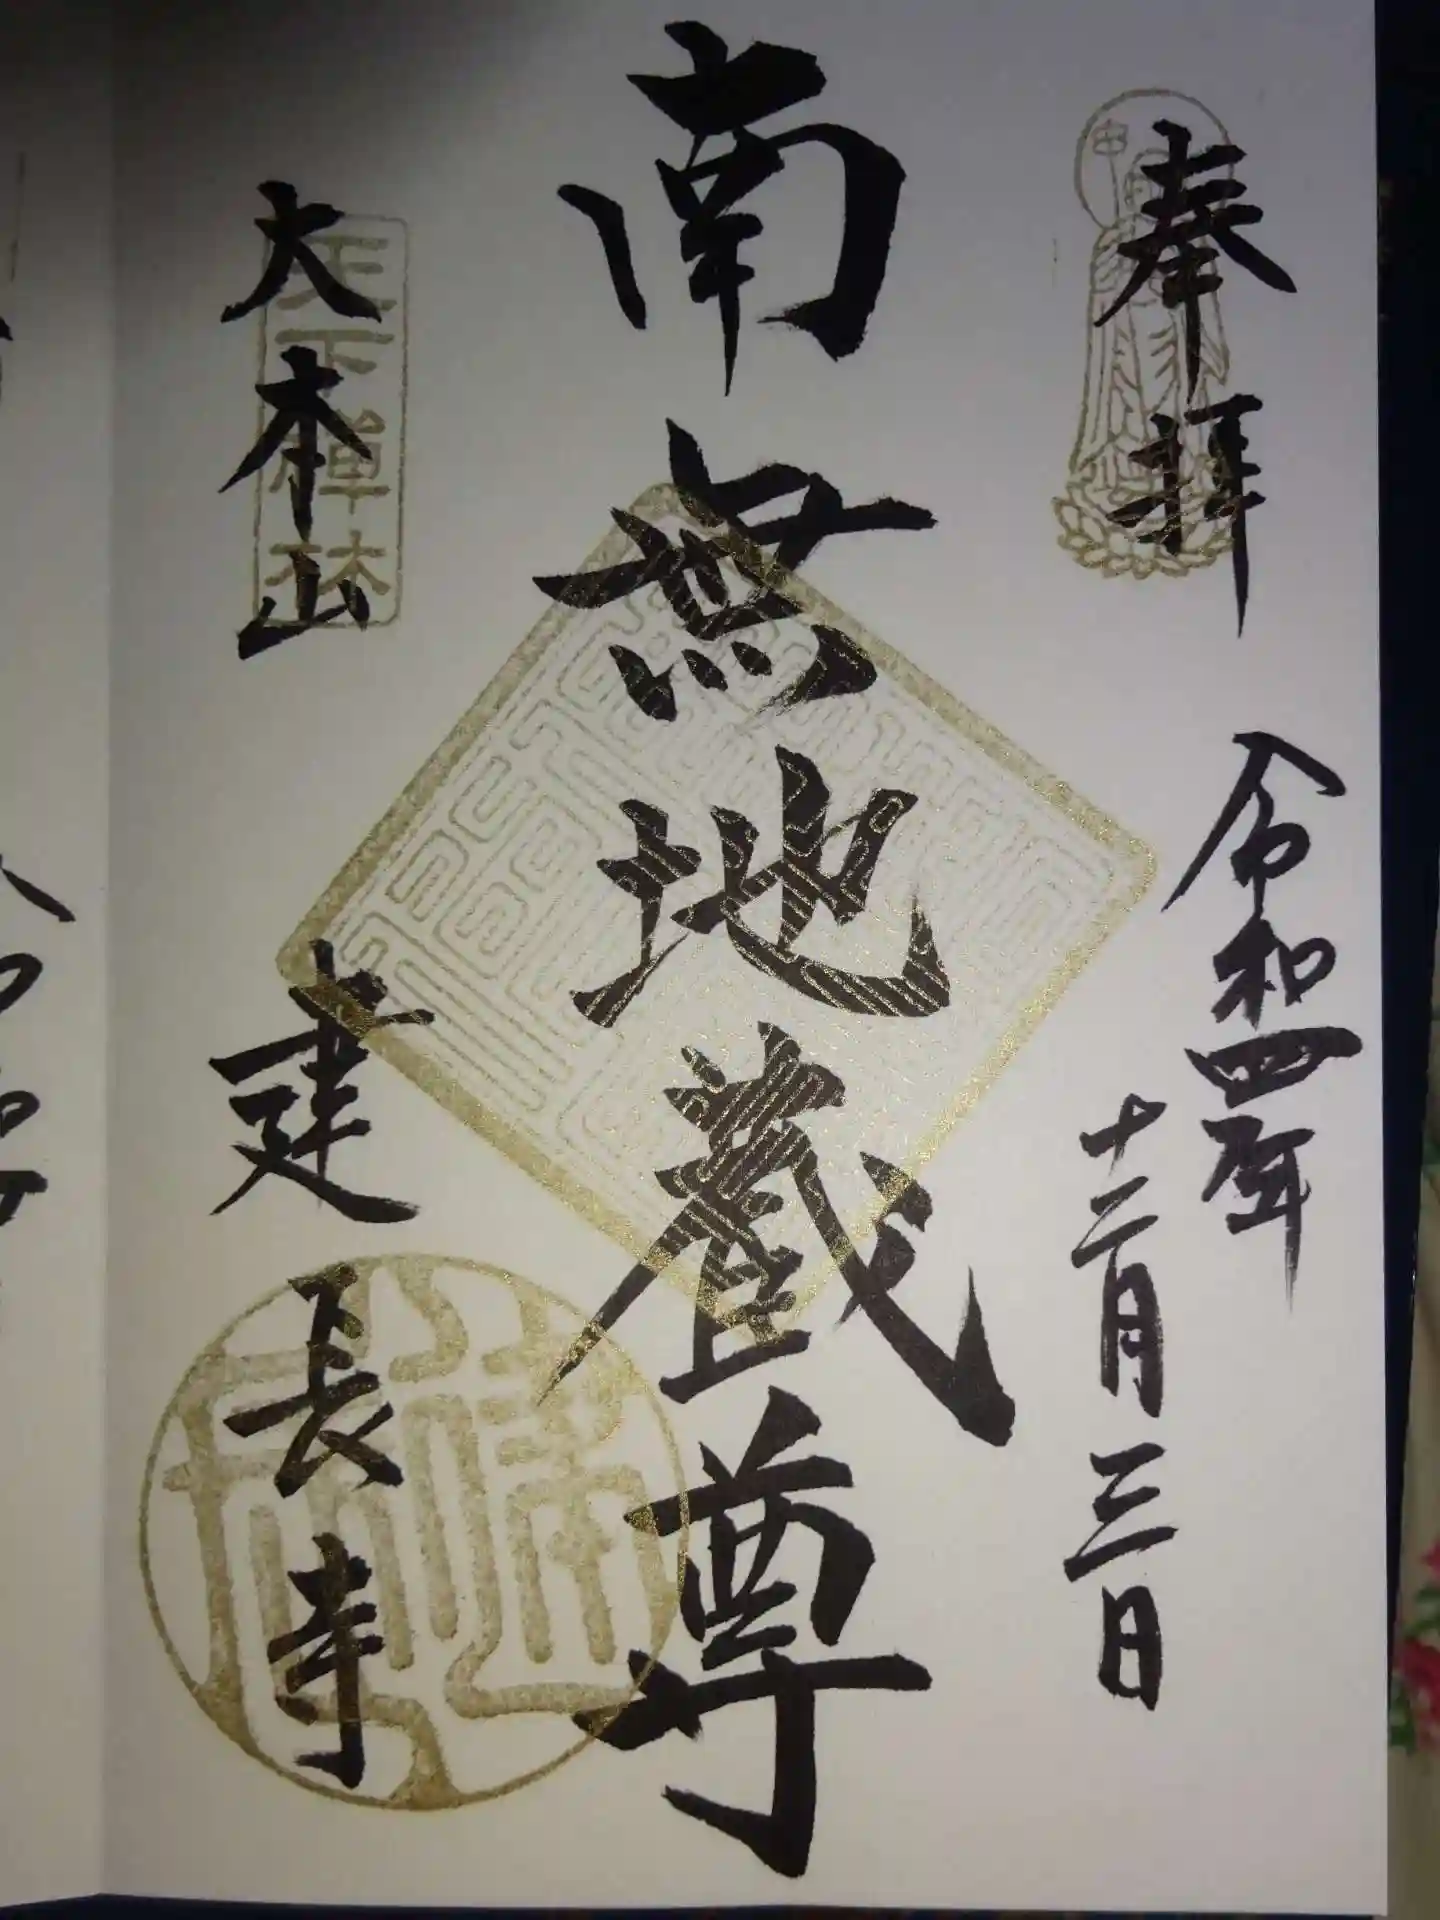 奉拝
令和四年
十二月三日
南無地蔵尊
大本山
天下禅林
建長寺